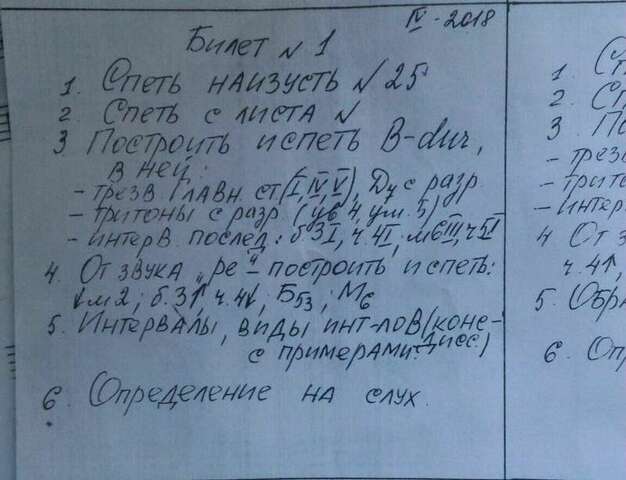 IV - 2018
Билет № 1
1. Спеть наизусть № 25
2 Спеть с листа №
3 Построить и спеть B-dur,
в ней:
- трезв. главн. ст. (I, IV, V), D₇ с разр.
- тритоны с разр. (ув 4, ум. 5)
- интерв. послед: б3I, ч.4I, м6III, ч5I
4. От звука „ре" построить и спеть:
↓м2; б.3↑, ч.4↓, Б53; М6
5. Интервалы, виды инт-лов (конс-
дисс.)
с примерами.
6. Определение на слух.
1. Сп
2. Сп
3 По
- трезв
- трито
- интер
4 От з
ч.4↑,
5. Обра
6. Опр